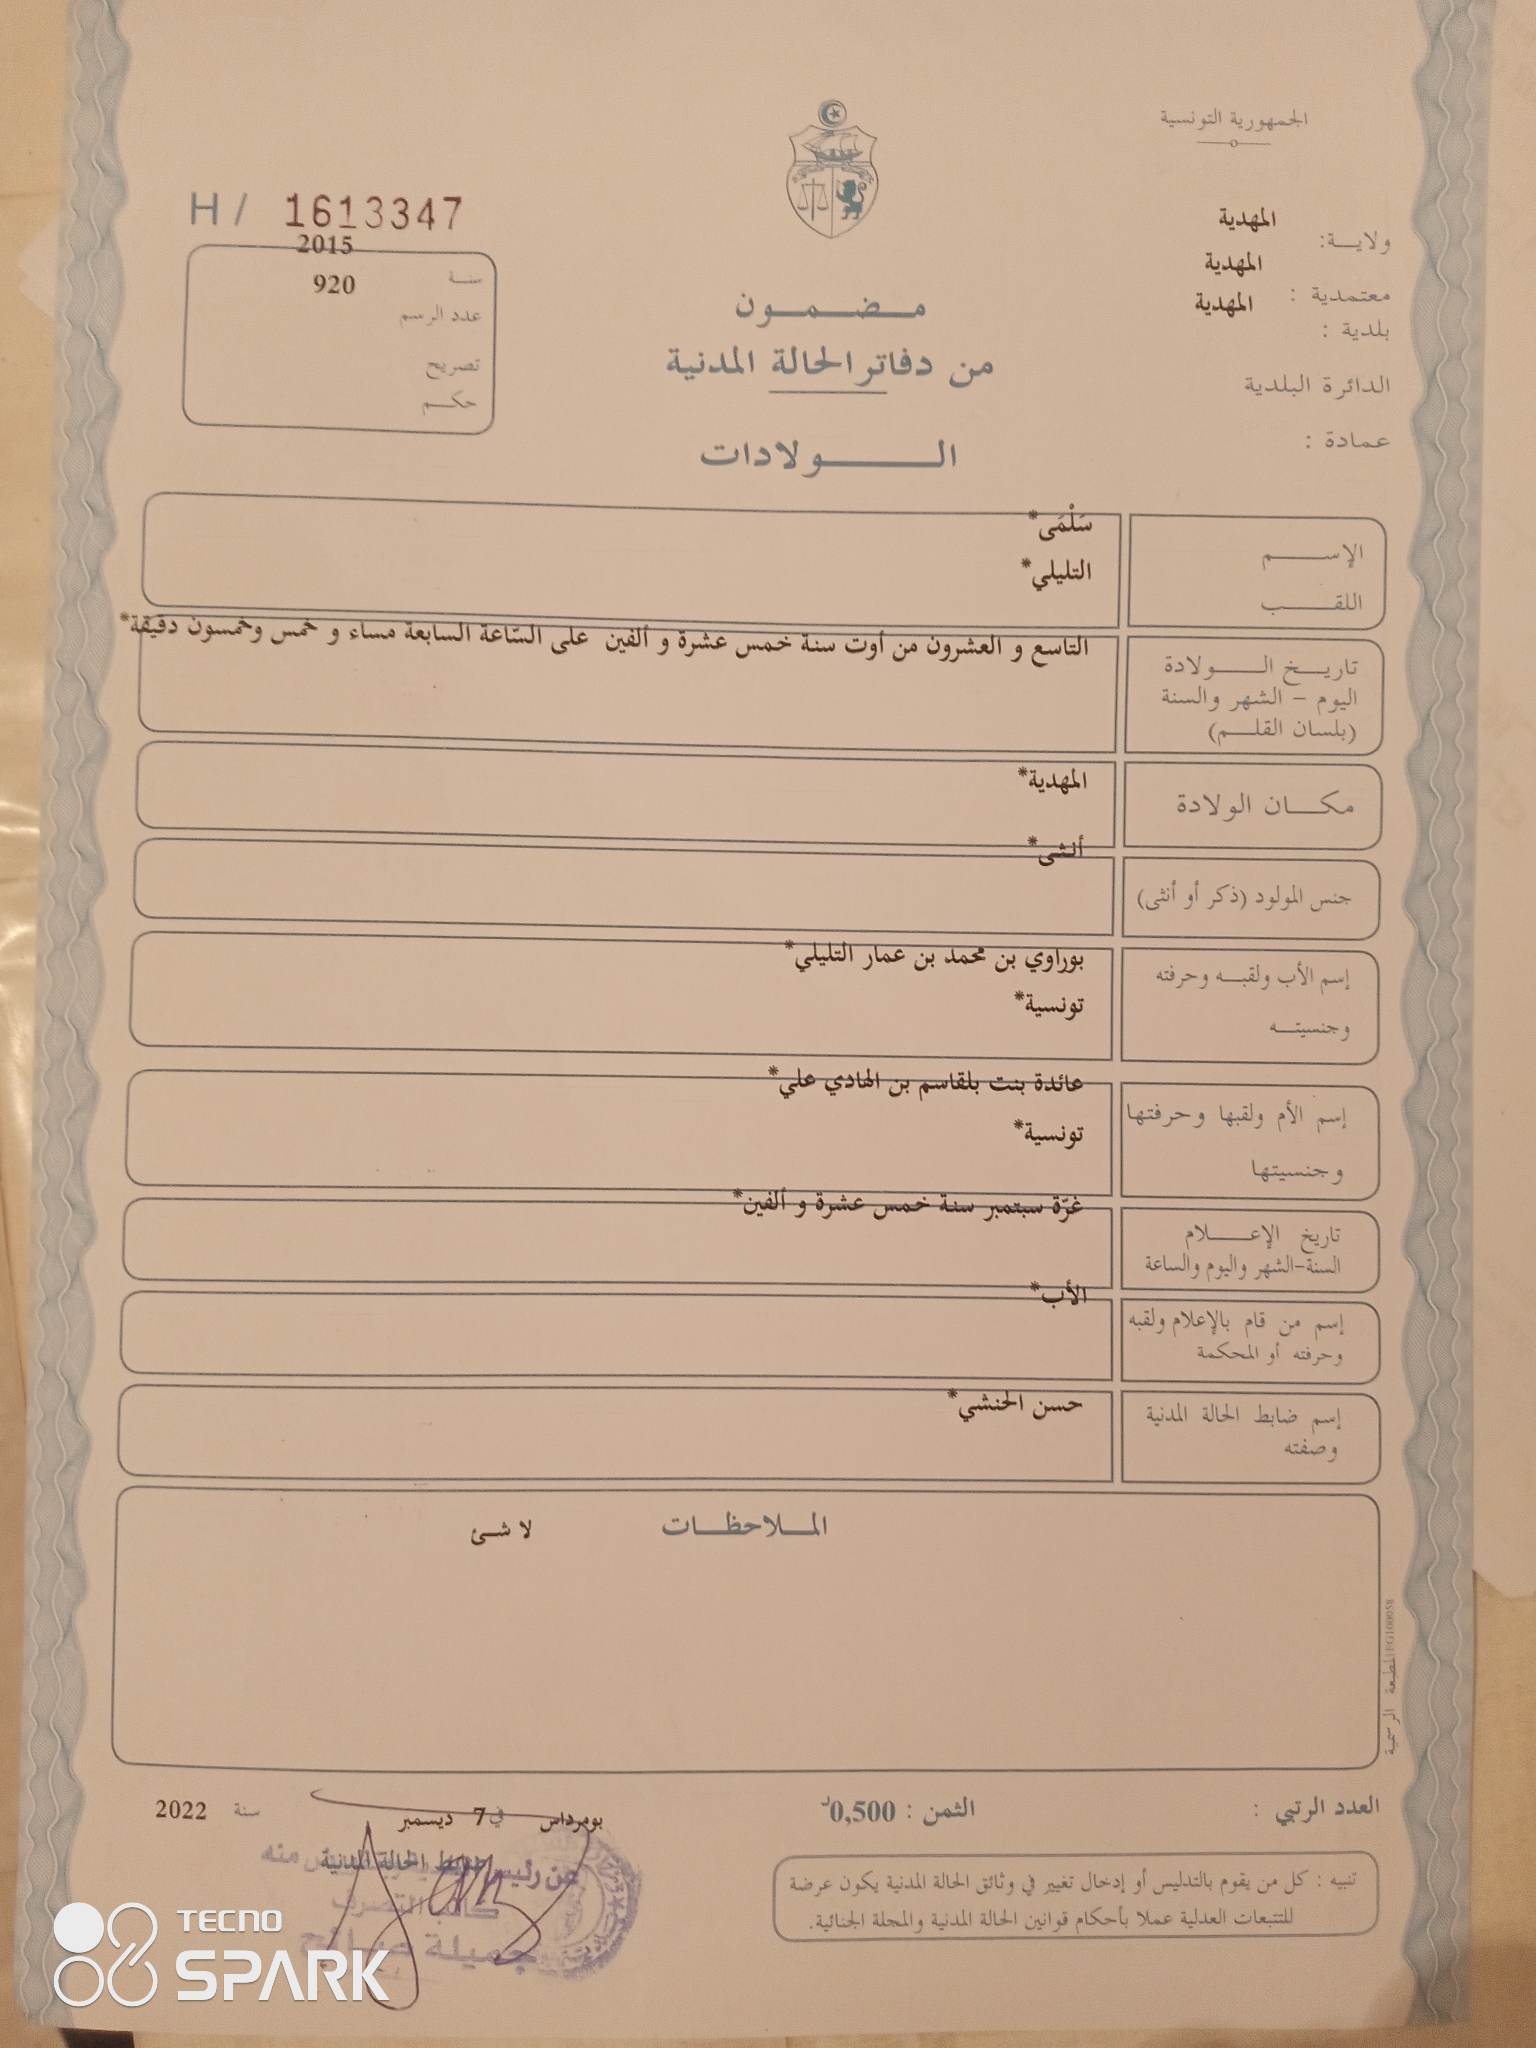 الجمهورية التونسية
ولايـــة: المهدية
معتمدية : المهدية
بلدية : المهدية
الدائرة البلدية
عمادة :
H / 1613347
سنة 2015
عدد الرسم 920
تصريح
حكم
مضمون
من دفاتر الحالة المدنية
الولادات
الإسم سَلْمَى*
اللقب التليلي*
تاريخ الولادة
اليوم - الشهر والسنة
(بلسان القلم)
التاسع و العشرون من أوت سنة خمس عشرة و ألفين على السّاعة السابعة مساء و خمس وخمسون دقيقة*
مكان الولادة المهدية*
جنس المولود (ذكر أو أنثى) أنثى*
إسم الأب ولقبه وحرفته بوراوي بن محمد بن عمار التليلي*
وجنسيته تونسية*
إسم الأم ولقبها وحرفتها عائدة بنت بلقاسم بن الهادي علي*
وجنسيتها تونسية*
تاريخ الإعلام غرّة سبتمبر سنة خمس عشرة و ألفين*
السنة-الشهر واليوم والساعة
إسم من قام بالإعلام ولقبه الأب*
وحرفته أو المحكمة
إسم ضابط الحالة المدنية حسن الحنشي*
وصفته
الملاحظات لا شئ
المطبعة الرسمية
العدد الرتبي :
الثمن : 0,500د
بومرداس في 7 ديسمبر سنة 2022
ضابط الحالة المدنية
عن رئيس منه
كاتب التصرف
جميلة
تنبيه : كل من يقوم بالتدليس أو إدخال تغيير في وثائق الحالة المدنية يكون عرضة
للتتبعات العدلية عملا بأحكام قوانين الحالة المدنية والمجلة الجنائية.
TECNO
SPARK